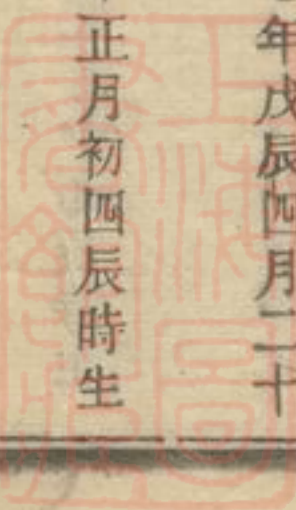 年戊辰四月二十
正月初四辰時生